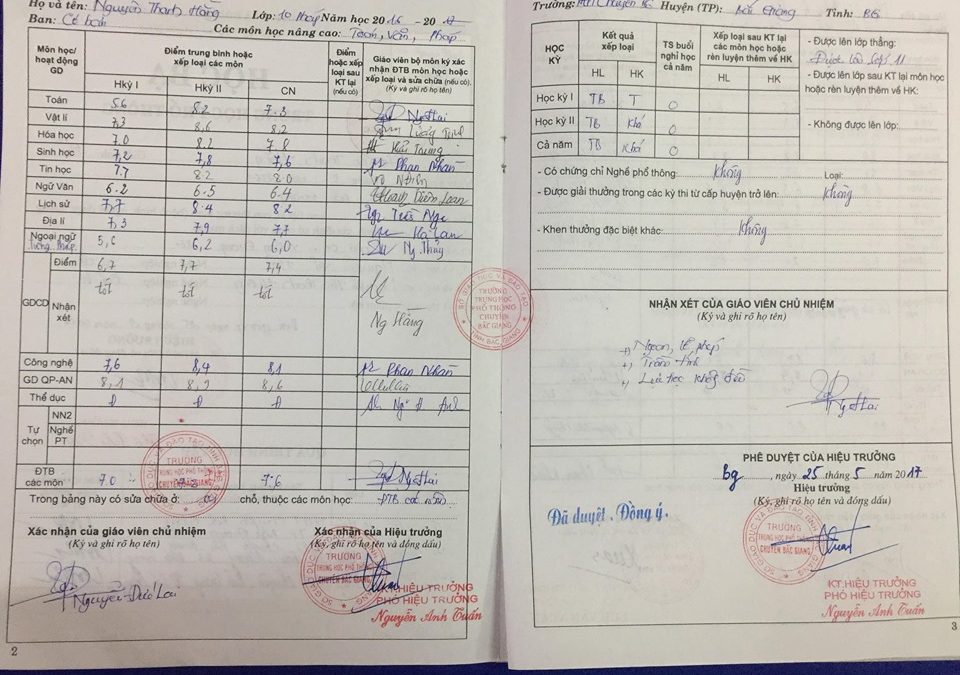 Họ và tên: Nguyễn Thanh Hằng Lớp: 10 Pháp Năm học 2016 - 2017
Ban: Cơ bản
Các môn học nâng cao: Toán, Văn, Pháp
Môn học/ hoạt động GD
Điểm trung bình hoặc xếp loại các môn
Hkỳ I Hkỳ II CN
Điểm hoặc xếp loại sau KT lại (nếu có)
Giáo viên bộ môn ký xác nhận ĐTB môn học hoặc xếp loại và sửa chữa (nếu có).
(Ký và ghi rõ họ tên)
Toán 5.6 8.2 7.3
Vật lí 7,3 8,6 8,2
Hóa học 7.0 8.2 7.8
Sinh học 7,2 7,8 7,6 Phan Nhàn
Tin học 7.7 8.2 8.0
Ngữ Văn 6.2 6.5 6.4
Lịch sử 7,7 8.4 8.2
Địa lí 7,3 7,9 7,7
Ngoại ngữ 6,2 6,0 Ng. Thủy
Tiếng Pháp
GDCD
Điểm 6,7 7,7 7,4
Nhận xét tốt tốt tốt
Ng Hằng
Công nghệ 7,6 8,4 8,1 Phan Nhàn
GD QP-AN 8,1 8,9 8,6
Thể dục Đ Đ Đ
Tự chọn
NN2
Nghề PT
ĐTB các môn 7.0 7.6
Trong bảng này có sửa chữa ở: 01 chỗ, thuộc các môn học: ĐTB các môn
Xác nhận của giáo viên chủ nhiệm
(Ký và ghi rõ họ tên)
Nguyễn Đức Lai
Xác nhận của Hiệu trưởng
(Ký, ghi rõ họ tên và đóng dấu)
KT.HIỆU TRƯỞNG
PHÓ HIỆU TRƯỞNG
Nguyễn Anh Tuấn
SỞ GIÁO DỤC VÀ ĐÀO TẠO
TRƯỜNG
TRUNG HỌC PHỔ THÔNG
CHUYÊN BẮC GIANG
TỈNH BẮC GIANG
2
Trường: Chuyên BG Huyện (TP): Bắc Giang Tỉnh: BG
HỌC KỲ
Kết quả xếp loại
HL HK
TS buổi nghỉ học cả năm
Xếp loại sau KT lại các môn học hoặc rèn luyện thêm về HK
HL HK
Học kỳ I TB T 0
Học kỳ II TB Khá 0
Cả năm TB Khá 0
- Được lên lớp thẳng:
Được lên lớp 11
- Được lên lớp sau KT lại môn học hoặc rèn luyện thêm về HK:
- Không được lên lớp:
- Có chứng chỉ Nghề phổ thông: Không Loại:
- Được giải thưởng trong các kỳ thi từ cấp huyện trở lên: Không
- Khen thưởng đặc biệt khác: Không
NHẬN XÉT CỦA GIÁO VIÊN CHỦ NHIỆM
(Ký và ghi rõ họ tên)
+) Ngoan, lễ phép
+) Trầm tính
+) Lực học không đều
PHÊ DUYỆT CỦA HIỆU TRƯỞNG
Bg, ngày 25 tháng 5 năm 2017
Hiệu trưởng
(Ký, ghi rõ họ tên và đóng dấu)
Đã duyệt. Đồng ý.
KT.HIỆU TRƯỞNG
PHÓ HIỆU TRƯỞNG
Nguyễn Anh Tuấn
3